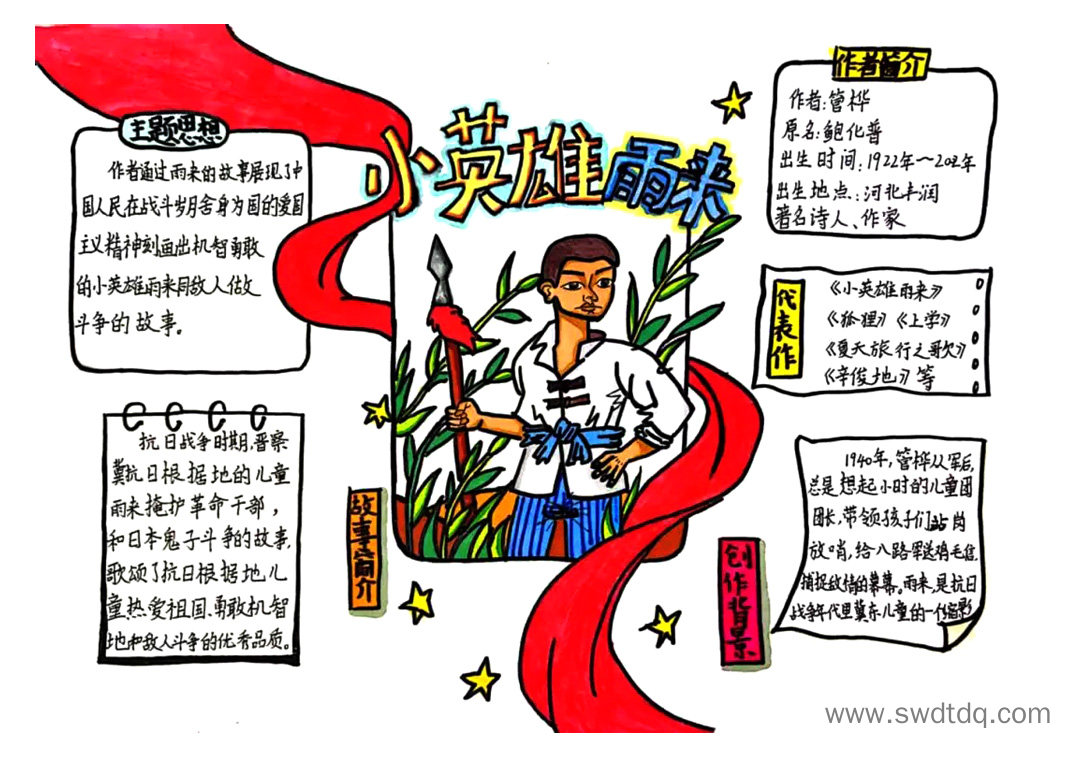 小英雄雨来
主题思想
作者通过雨来的故事展现了中
国人民在战斗岁月舍身为国的爱国
主义精神刻画出机智勇敢
的小英雄雨来同敌人做
斗争的故事。
故事简介
抗日战争时期,晋察
冀抗日根据地的儿童
雨来掩护革命干部,
和日本鬼子斗争的故事,
歌颂了抗日根据地儿
童热爱祖国、勇敢机智
地和敌人斗争的优秀品质。
作者简介
作者:管桦
原名:鲍化普
出生时间:1922年~2002年
出生地点:河北丰润
著名诗人、作家
代表作
《小英雄雨来》
《狐狸》《上学》
《夏天旅行之歌》
《辛俊地》等
创作背景
1940年,管桦从军后,
总是想起小时的儿童团
团长,带领孩子们站岗
放哨,给八路军送鸡毛信,
捕捉敌情的幕幕。雨来,是抗日
战争年代里冀东儿童的一个缩影
www.swdtdq.com